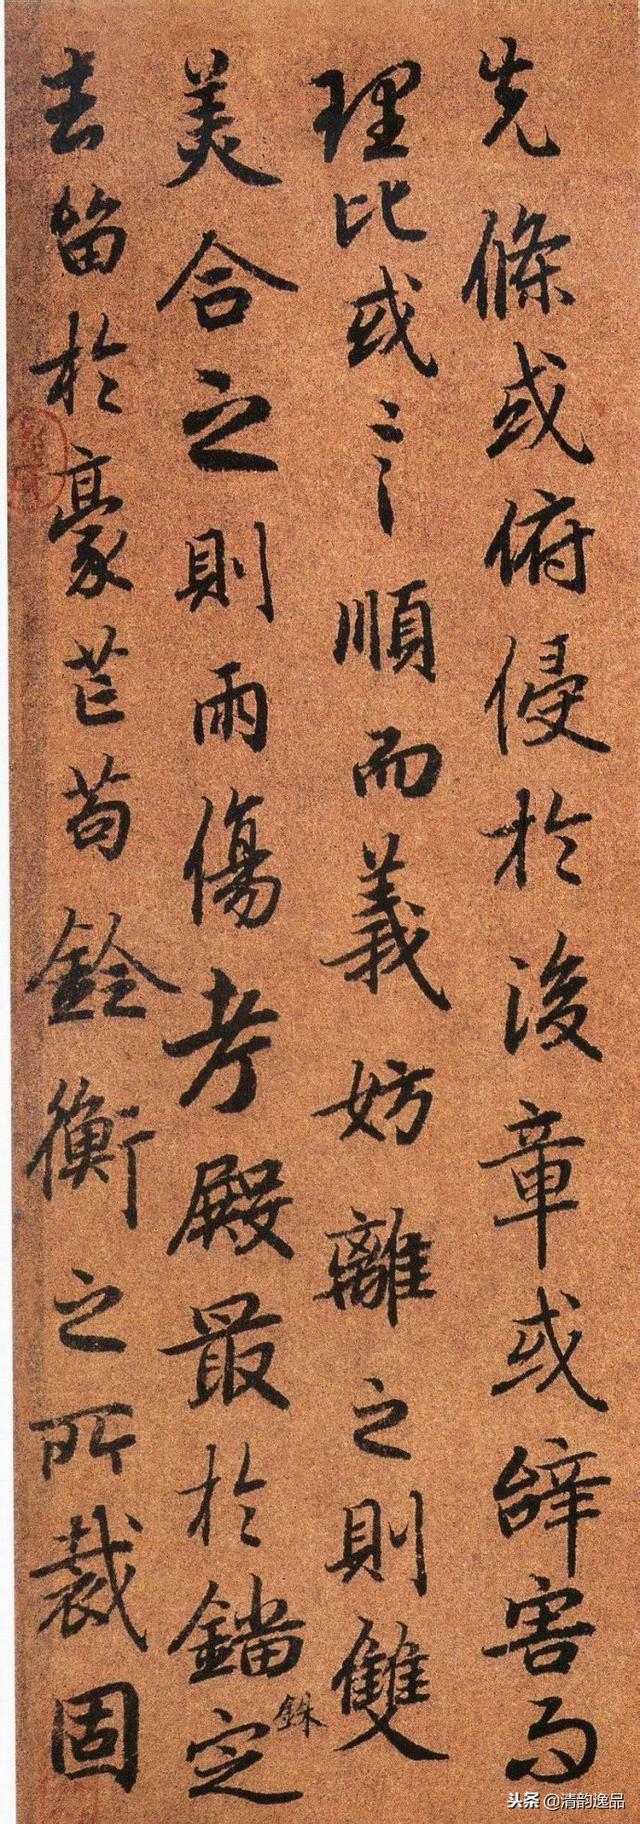 先條或俯侵於後章或辝害而
理比或言順而義妨離之則雙
美合之則兩傷考殿最於錙銖定
去留於豪芒苟銓衡之所裁固
头条 @清韵逸品